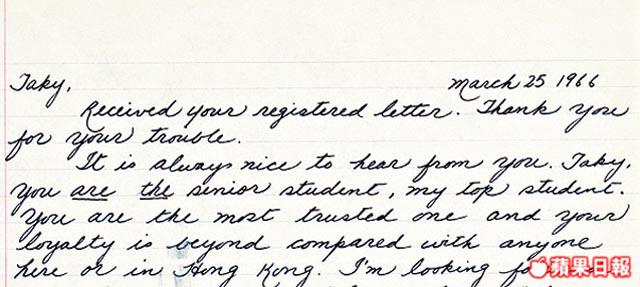 Taky,
March 25 1966
Received your registered letter. Thank you
for your trouble.
It is always nice to hear from you. Taky,
you are the senior student, my top student.
You are the most trusted one and your
loyalty is beyond compared with anyone
here or in Hong Kong. I'm looking
蘋果日報